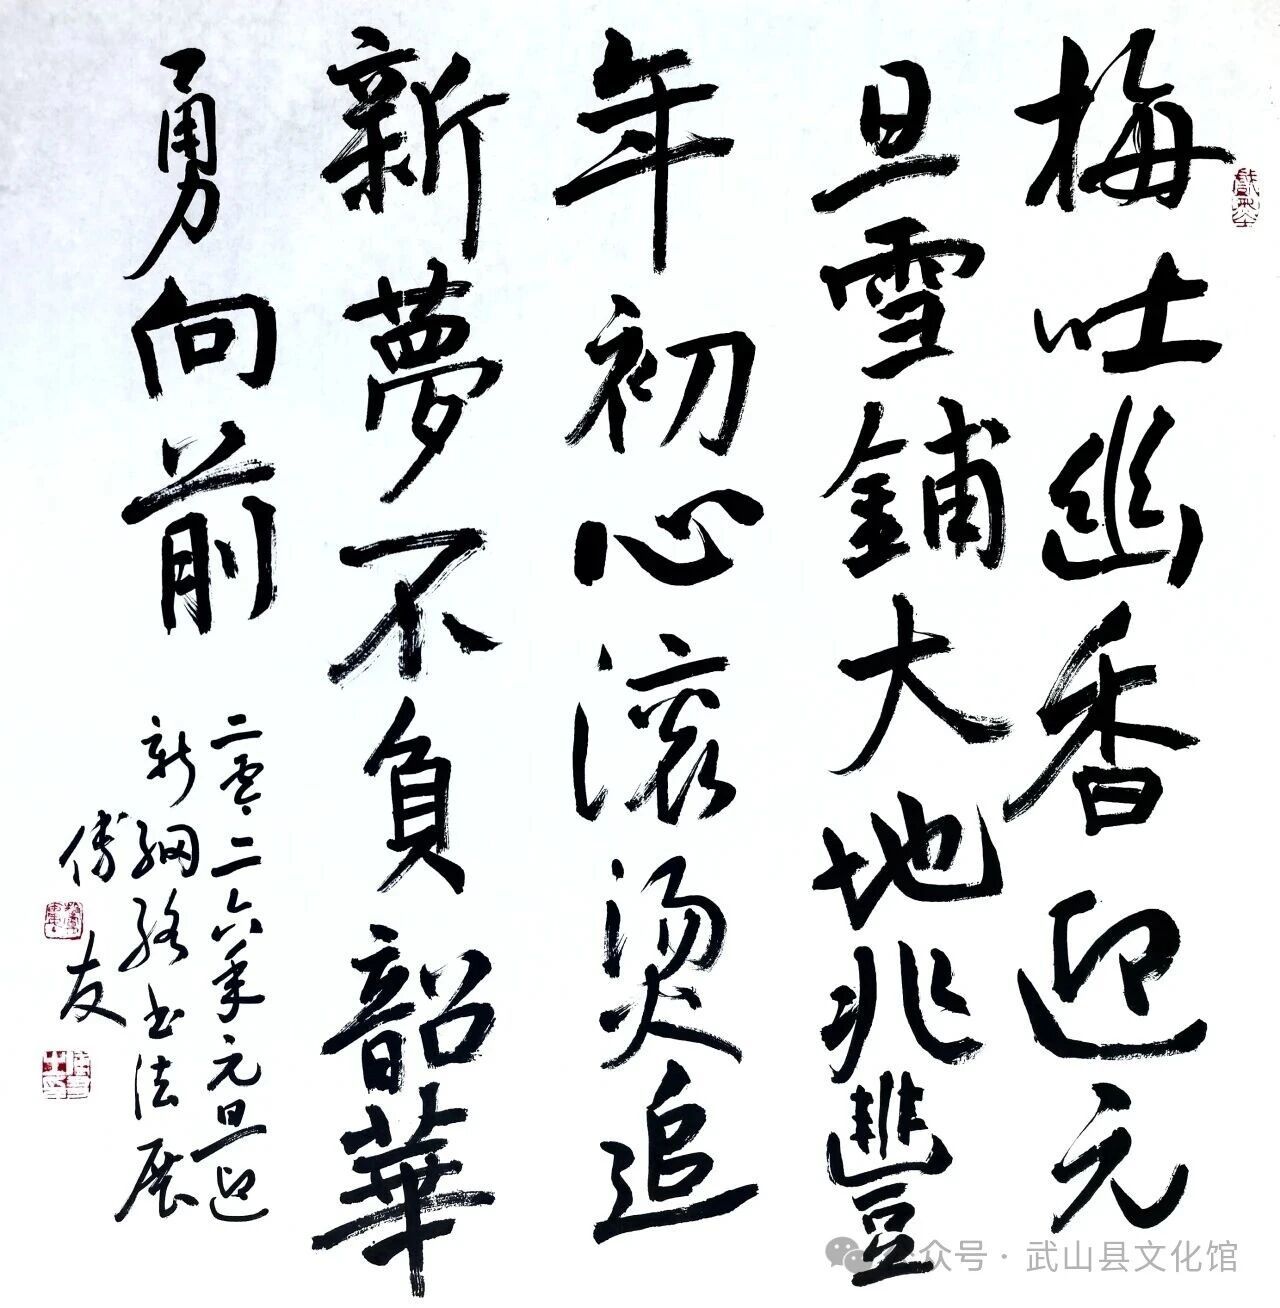 梅吐幽香迎元
旦雪鋪大地兆豐
年初心滚燙追
新夢不負韶華
勇向前
二零二六年元旦迎
新網絡书法展
傅
友
公众号 · 武山县文化馆